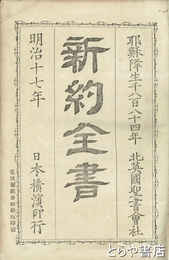 耶穌降生千八百八十四年
北英國聖書會社
新約全書
明治十七年
日本橫濱印行
とらや書店